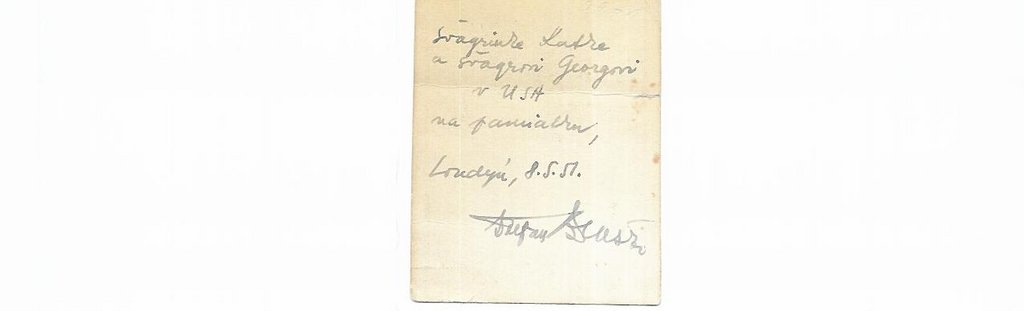 švagrinke Katke
a švagrovi Georgovi
v USA
na pamiatku,
Londýn, 8.5.51.
Štefan